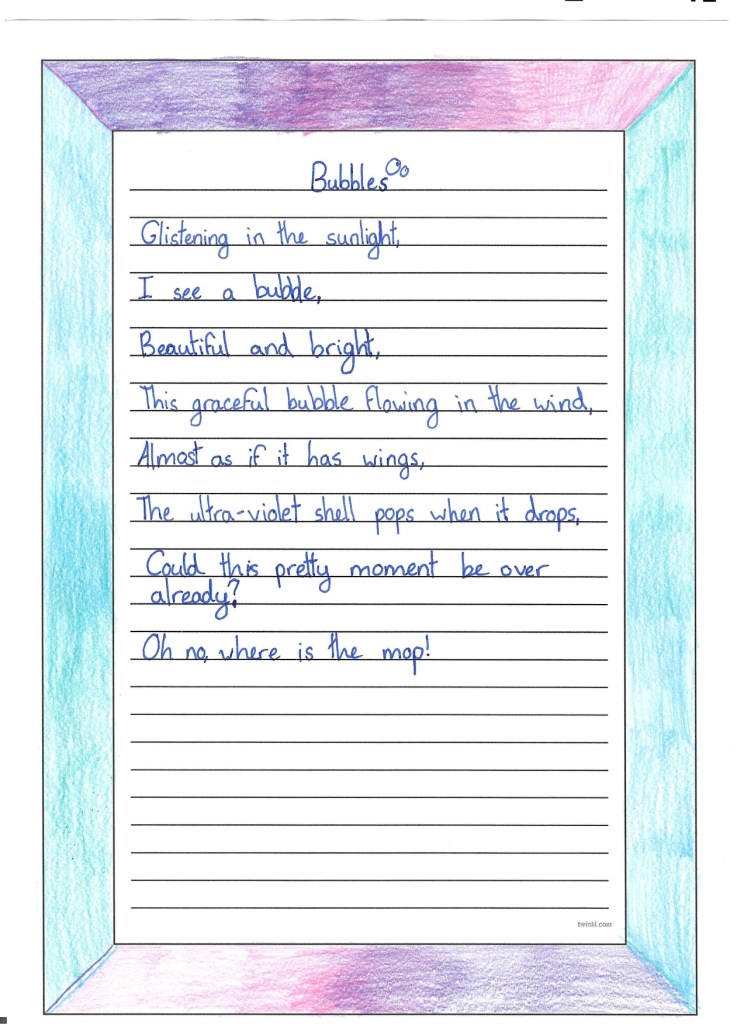 Bubbles
Glistening in the sunlight,
I see a bubble,
Beautiful and bright,
This graceful bubble flowing in the wind,
Almost as if it has wings,
The ultra-violet shell pops when it drops,
Could this pretty moment be over
already?
Oh no, where is the mop!
twinkl.com